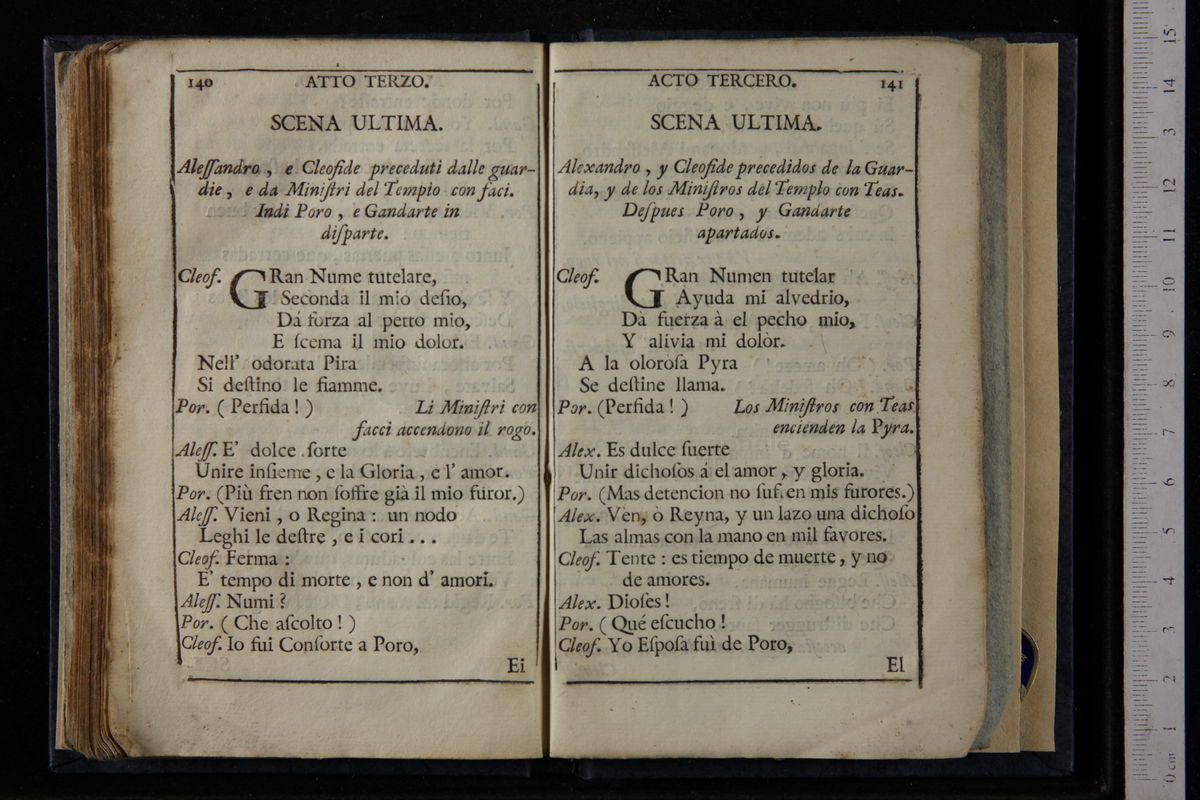 140 ATTO TERZO.
SCENA ULTIMA.
Aleſſandro , e Cleofide preceduti dalle guar-
die , e da Miniſtri del Tempio con faci.
Indi Poro , e Gandarte in
diſparte.
Cleof. GRan Nume tutelare,
Seconda il mio deſio,
Dá forza al petto mio,
E ſcema il mio dolor.
Nell' odorata Pira
Si deſtino le fiamme.
Por. ( Perfida ! ) Li Miniſtri con
facci accendono il rogo.
Aleſſ. E' dolce ſorte
Unire inſieme , e la Gloria , e l' amor.
Por. (Più fren non ſoffre già il mio furor.)
Aleſſ. Vieni , o Regina : un nodo
Leghi le deſtre , e i cori . . .
Cleof. Ferma :
E' tempo di morte , e non d' amori.
Aleſſ. Numi ?
Por. ( Che aſcolto ! )
Cleof. Io fui Conſorte a Poro,
Ei
ACTO TERCERO. 141
SCENA ULTIMA.
Alexandro , y Cleofide precedidos de la Guar-
dia, y de los Miniſtros del Templo con Teas.
Deſpues Poro , y Gandarte
apartados.
Cleof. GRan Numen tutelar
Ayuda mi alvedrio,
Dà fuerza à el pecho mio,
Y alivia mi dolòr.
A la oloroſa Pyra
Se deſtine llama.
Por. (Perfida ! ) Los Miniſtros con Teas
encienden la Pyra.
Alex. Es dulce ſuerte
Unir dichoſos á el amor , y gloria.
Por. (Mas detencion no ſuf. en mis furores.)
Alex. Ven, ò Reyna, y un lazo una dichoſo
Las almas con la mano en mil favores.
Cleof. Tente : es tiempo de muerte , y no
de amores.
Alex. Dioſes !
Por. ( Qué eſcucho !
Cleof. Yo Eſpoſa fuì de Poro,
El
0 cm 1 2 3 4 5 6 7 8 9 10 11 12 13 14 15